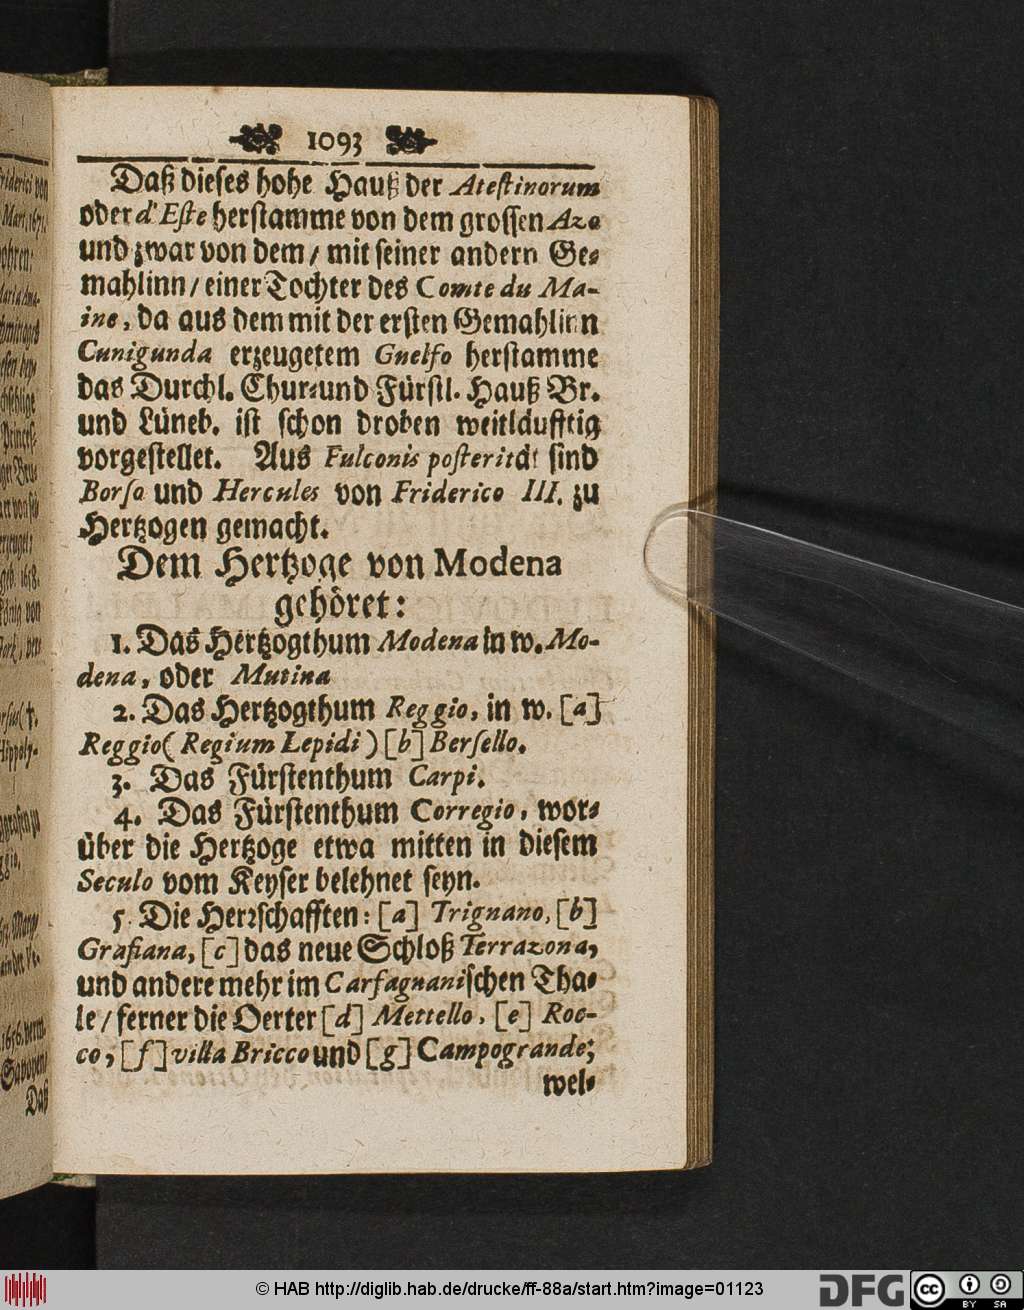 1093
Daß dieses hohe Hauß der Atestinorum
oder d'Este herstamme von dem grossen Azo
und zwar von dem / mit seiner andern Ge-
mahlinn / einer Tochter des Comte du Ma-
ine, da aus dem mit der ersten Gemahlinn
Cunigunda erzeugetem Guelfo herstamme
das Durchl. Chur- und Fürstl. Hauß Br.
und Lüneb. ist schon droben weitläufftig
vorgestellet. Aus Fulconis posterität sind
Borso und Hercules von Friderico III. zu
Hertzogen gemacht.
Dem Hertzoge von Modena
gehöret:
1. Das Hertzogthum Modena in w. Mo-
dena, oder Mutina
2. Das Hertzogthum Reggio, in w. [a]
Reggio ( Regium Lepidi ) [b] Bersello.
3. Das Fürstenthum Carpi.
4. Das Fürstenthum Corregio, wor-
über die Hertzoge etwa mitten in diesem
Seculo vom Keyser belehnet seyn.
5. Die Herrschafften: [a] Trignano, [b]
Grafiana, [c] das neue Schloß Terrazona,
und andere mehr im Carfagnanischen Tha-
le / ferner die Oerter [d] Mettello, [e] Roc-
co, [f] villa Bricco und [g] Campogrande;
wel-
Mart. 1671.
geb. 1658.
König von
Savoyen
Daß
© HAB http://diglib.hab.de/drucke/ff-88a/start.htm?image=01123
DFG
cc
BY SA